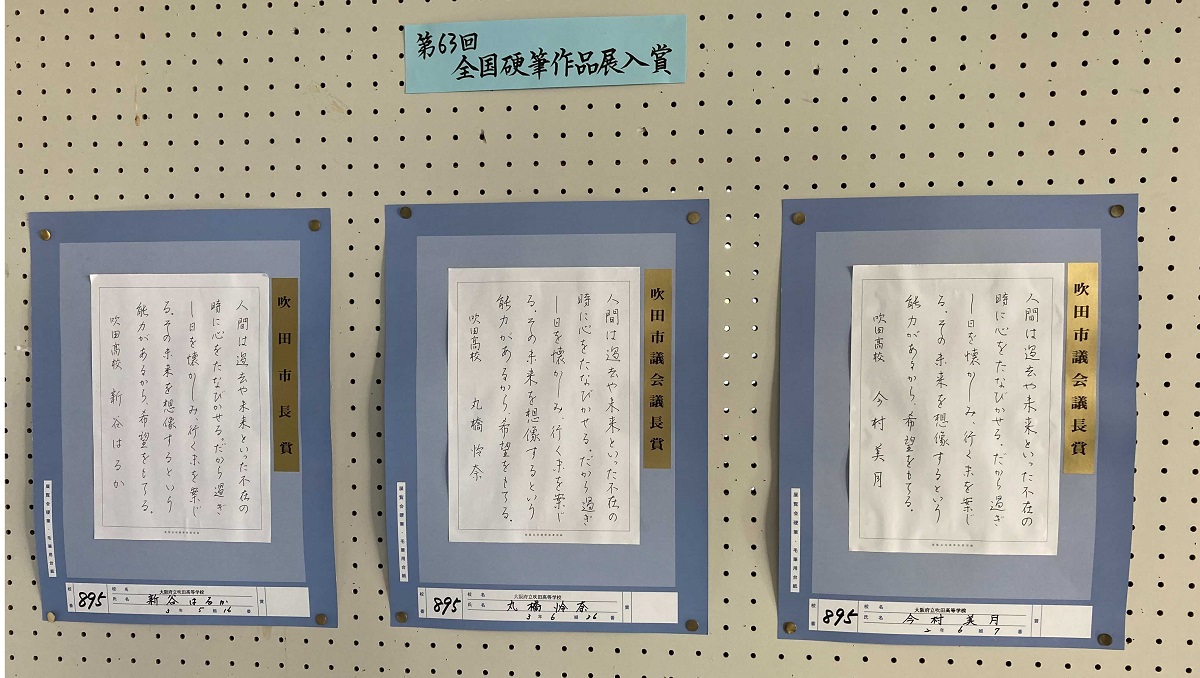 第63回
全国硬筆作品展入賞
吹田市長賞
人間は過去や未来といった不在の
時に心をたなびかせる。だから過ぎ
し日を懐かしみ、行く末を案じ
る。その未来を想像するという
能力があるから、希望をもてる。
吹田高校 新谷はるか
展覧会硬筆・毛筆用台紙
校番 895
校名 大阪府立吹田高等学校
氏名 新谷はるか
3年5組16番
賞
吹田市議会議長賞
人間は過去や未来といった不在の
時に心をたなびかせる。だから過ぎ
し日を懐かしみ、行く末を案じ
る。その未来を想像するという
能力があるから、希望をもてる。
吹田高校 丸橋怜奈
展覧会硬筆・毛筆用台紙
校番 895
校名 大阪府立吹田高等学校
氏名 丸橋怜奈
3年6組26番
賞
吹田市議会議長賞
人間は過去や未来といった不在の
時に心をたなびかせる。だから過ぎ
し日を懐かしみ、行く末を案じ
る。その未来を想像するという
能力があるから、希望をもてる。
吹田高校 今村美月
展覧会硬筆・毛筆用台紙
校番 895
校名 大阪府立吹田高等学校
氏名 今村美月
2年6組7番
賞